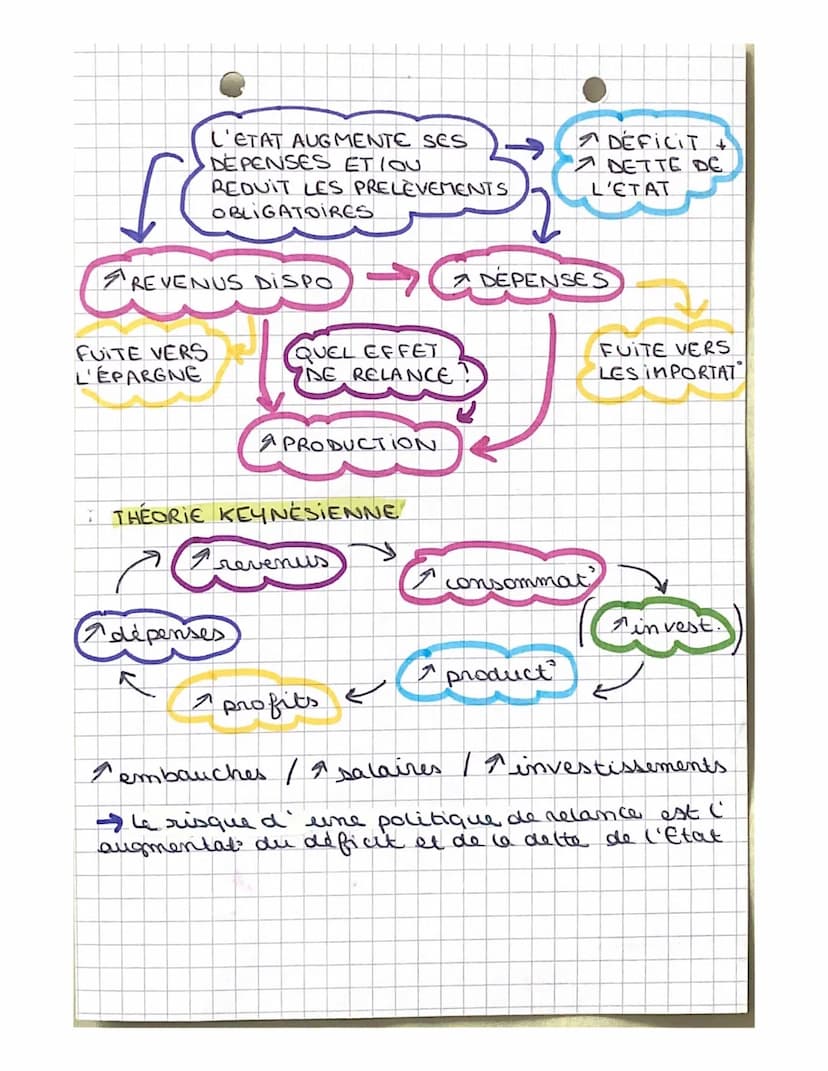 L'ETAT AUGMENTE SES
DÉPENSES ET/OU
RÉDUIT LES PRÉLÈVEMENTS
OBLIGATOIRES
↗ DÉFICIT +
↗ DETTE DE
L'ETAT
↗ REVENUS DISPO
↗ DÉPENSES
FUITE VERS
L'ÉPARGNE
QUEL EFFET
DE RELANCE ?
FUITE VERS
LES IMPORTAT°
↗ PRODUCTION
: THÉORIE KEYNÉSIENNE
↗ revenus
↗ consommat°
↗ dépenses
(↗ invest.)
↗ product°
↗ profits
↗ embauches / ↗ salaires / ↗ investissements
→ Le risque d'une politique de relance est l'
augmentat° du déficit et de la dette de l'Etat